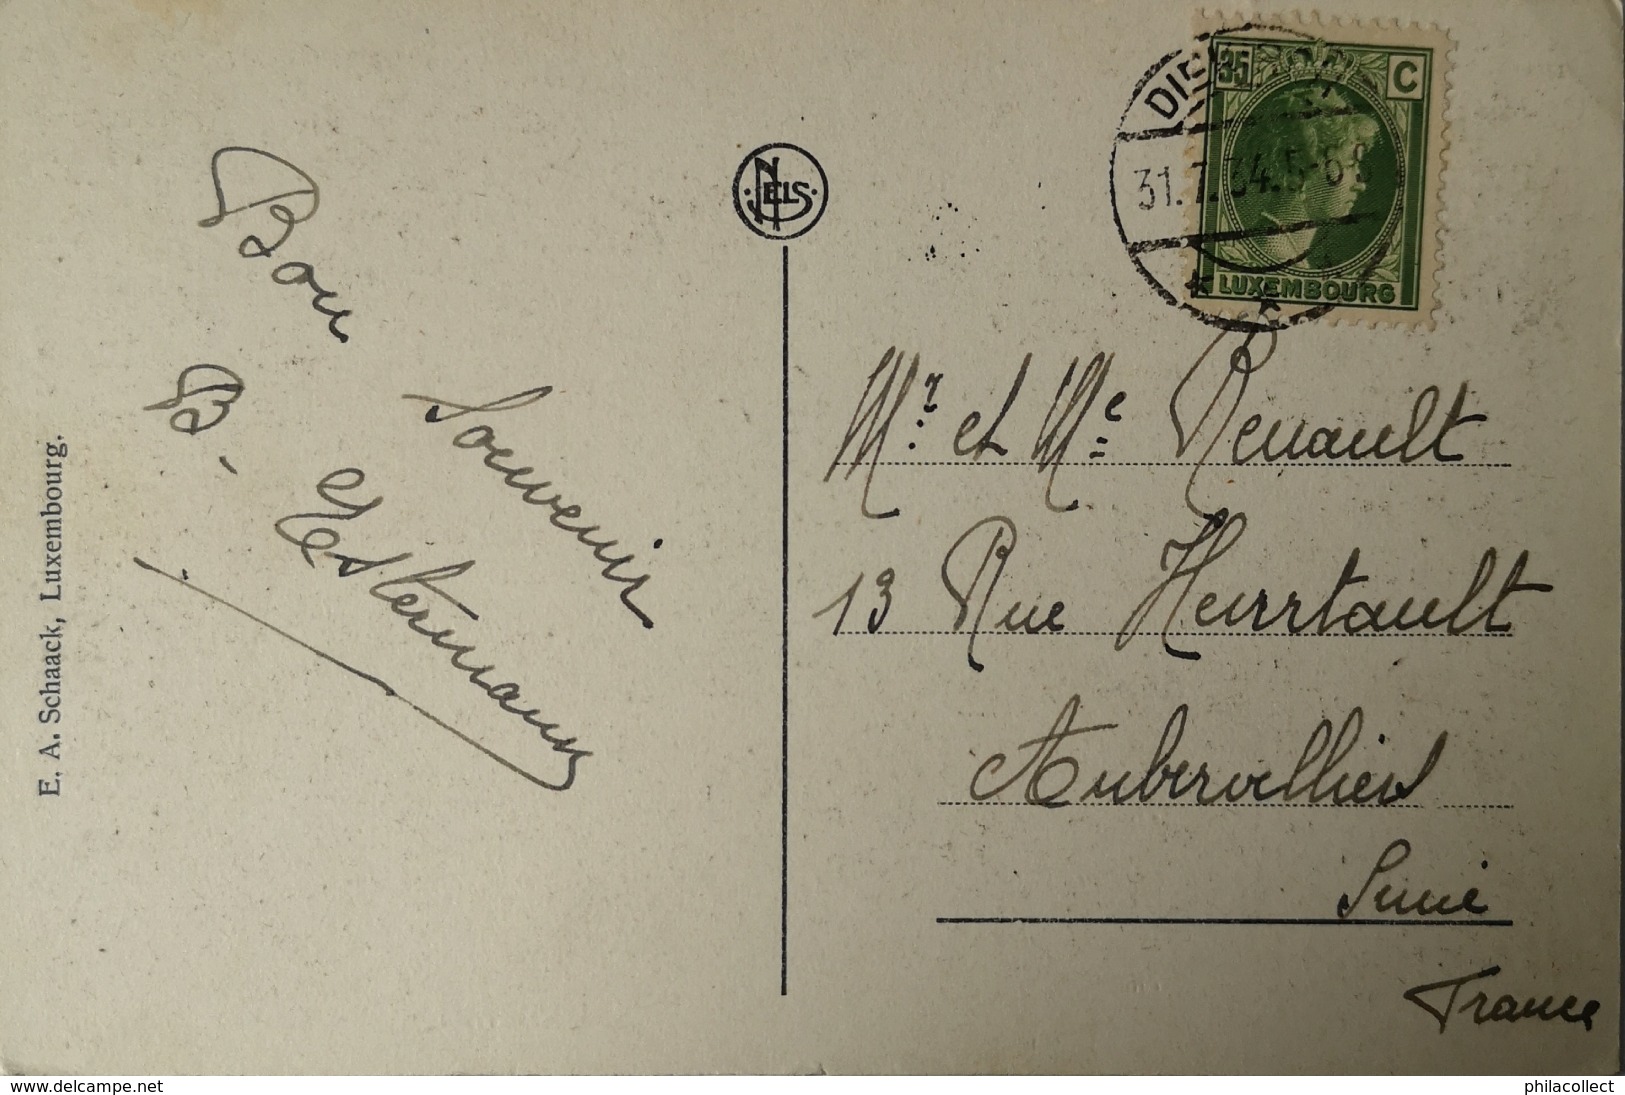 E. A. Schaack, Luxembourg.
Bon
Souvenir
B. Estermann
NELS
35 C
LUXEMBOURG
31.7.34.5-6
Mr. et Me Renault
13 Rue Heurtault
Aubervilliers
Seine
France
www.delcampe.net
philacollect